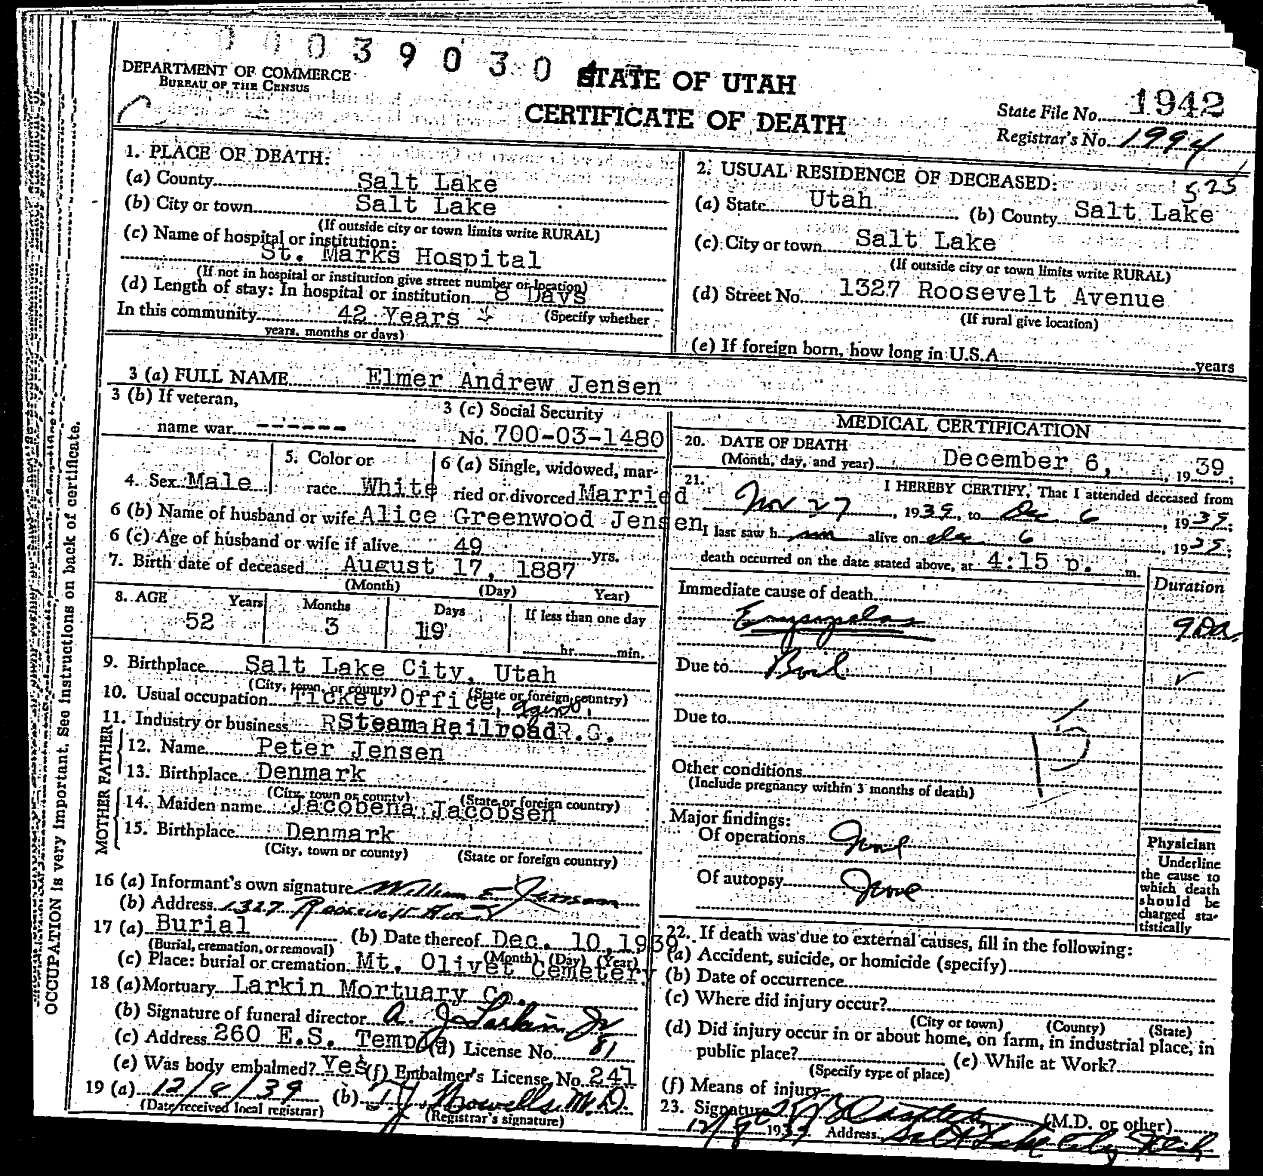 0039030
DEPARTMENT OF COMMERCE
BUREAU OF THE CENSUS
STATE OF UTAH
CERTIFICATE OF DEATH
State File No. 1942
Registrar's No. 1994
1. PLACE OF DEATH:
(a) County Salt Lake
(b) City or town Salt Lake
(If outside city or town limits write RURAL)
(c) Name of hospital or institution:
St. Marks Hospital
(If not in hospital or institution give street number or location)
(d) Length of stay: In hospital or institution 8 Days
In this community 42 Years (Specify whether
years, months or days)
2. USUAL RESIDENCE OF DECEASED: 525
(a) State Utah (b) County Salt Lake
(c) City or town Salt Lake
(If outside city or town limits write RURAL)
(d) Street No. 1327 Roosevelt Avenue
(If rural give location)
(e) If foreign born, how long in U.S.A. years
3 (a) FULL NAME Elmer Andrew Jensen
3 (b) If veteran,
name war ------
3 (c) Social Security
No. 700-03-1480
4. Sex Male
5. Color or
race White
6 (a) Single, widowed, mar-
ried or divorced Married
6 (b) Name of husband or wife Alice Greenwood Jensen
6 (c) Age of husband or wife if alive 49 yrs.
7. Birth date of deceased August 17, 1887
(Month) (Day) Year)
8. AGE Years Months Days If less than one day
52 3 19 hr. min.
9. Birthplace Salt Lake City, Utah
(City, town, or county) (State or foreign country)
10. Usual occupation Ticket Office, Agent,
11. Industry or business Steam Railroad R.G.
FATHER
12. Name Peter Jensen
13. Birthplace Denmark
(City, town or county) (State or foreign country)
MOTHER
14. Maiden name Jacobena Jacobsen
15. Birthplace Denmark
(City, town or county) (State or foreign country)
16 (a) Informant's own signature William E Jensen
(b) Address 1327 Roosevelt Ave
17 (a) Burial (b) Date thereof Dec. 10, 1939.
(Burial, cremation, or removal) (Month) (Day) (Year)
(c) Place: burial or cremation Mt. Olivet Cemetery
18 (a) Mortuary Larkin Mortuary C .
(b) Signature of funeral director A J Larkin Jr
(c) Address 260 E.S. Temple (d) License No. 81
(e) Was body embalmed? Yes (f) Embalmer's License No. 241
19 (a) 12/8/39 (b) T J Howells M.D.
(Date received local registrar) (Registrar's signature)
OCCUPATION is very important. See instructions on back of certificate.
MEDICAL CERTIFICATION
20. DATE OF DEATH
(Month, day, and year) December 6, , 1939;
21. I HEREBY CERTIFY, That I attended deceased from
Nov 27, 1939, to Dec 6, 1939;
I last saw him alive on Dec 6, 1939;
death occurred on the date stated above, at 4:15 p. m.
Immediate cause of death Duration
Erysipelas 9 Da.
Due to Boil
Due to
Other conditions
(Include pregnancy within 3 months of death)
Major findings:
Of operations None
Of autopsy None
Physician
Underline
the cause to
which death
should be
charged sta-
tistically
22. If death was due to external causes, fill in the following:
(a) Accident, suicide, or homicide (specify)
(b) Date of occurrence
(c) Where did injury occur?
(City or town) (County) (State)
(d) Did injury occur in or about home, on farm, in industrial place, in
public place? (e) While at Work?
(Specify type of place)
(f) Means of injury
23. Signature (M.D. or other)
12/8 1939 Address Salt Lake City Utah